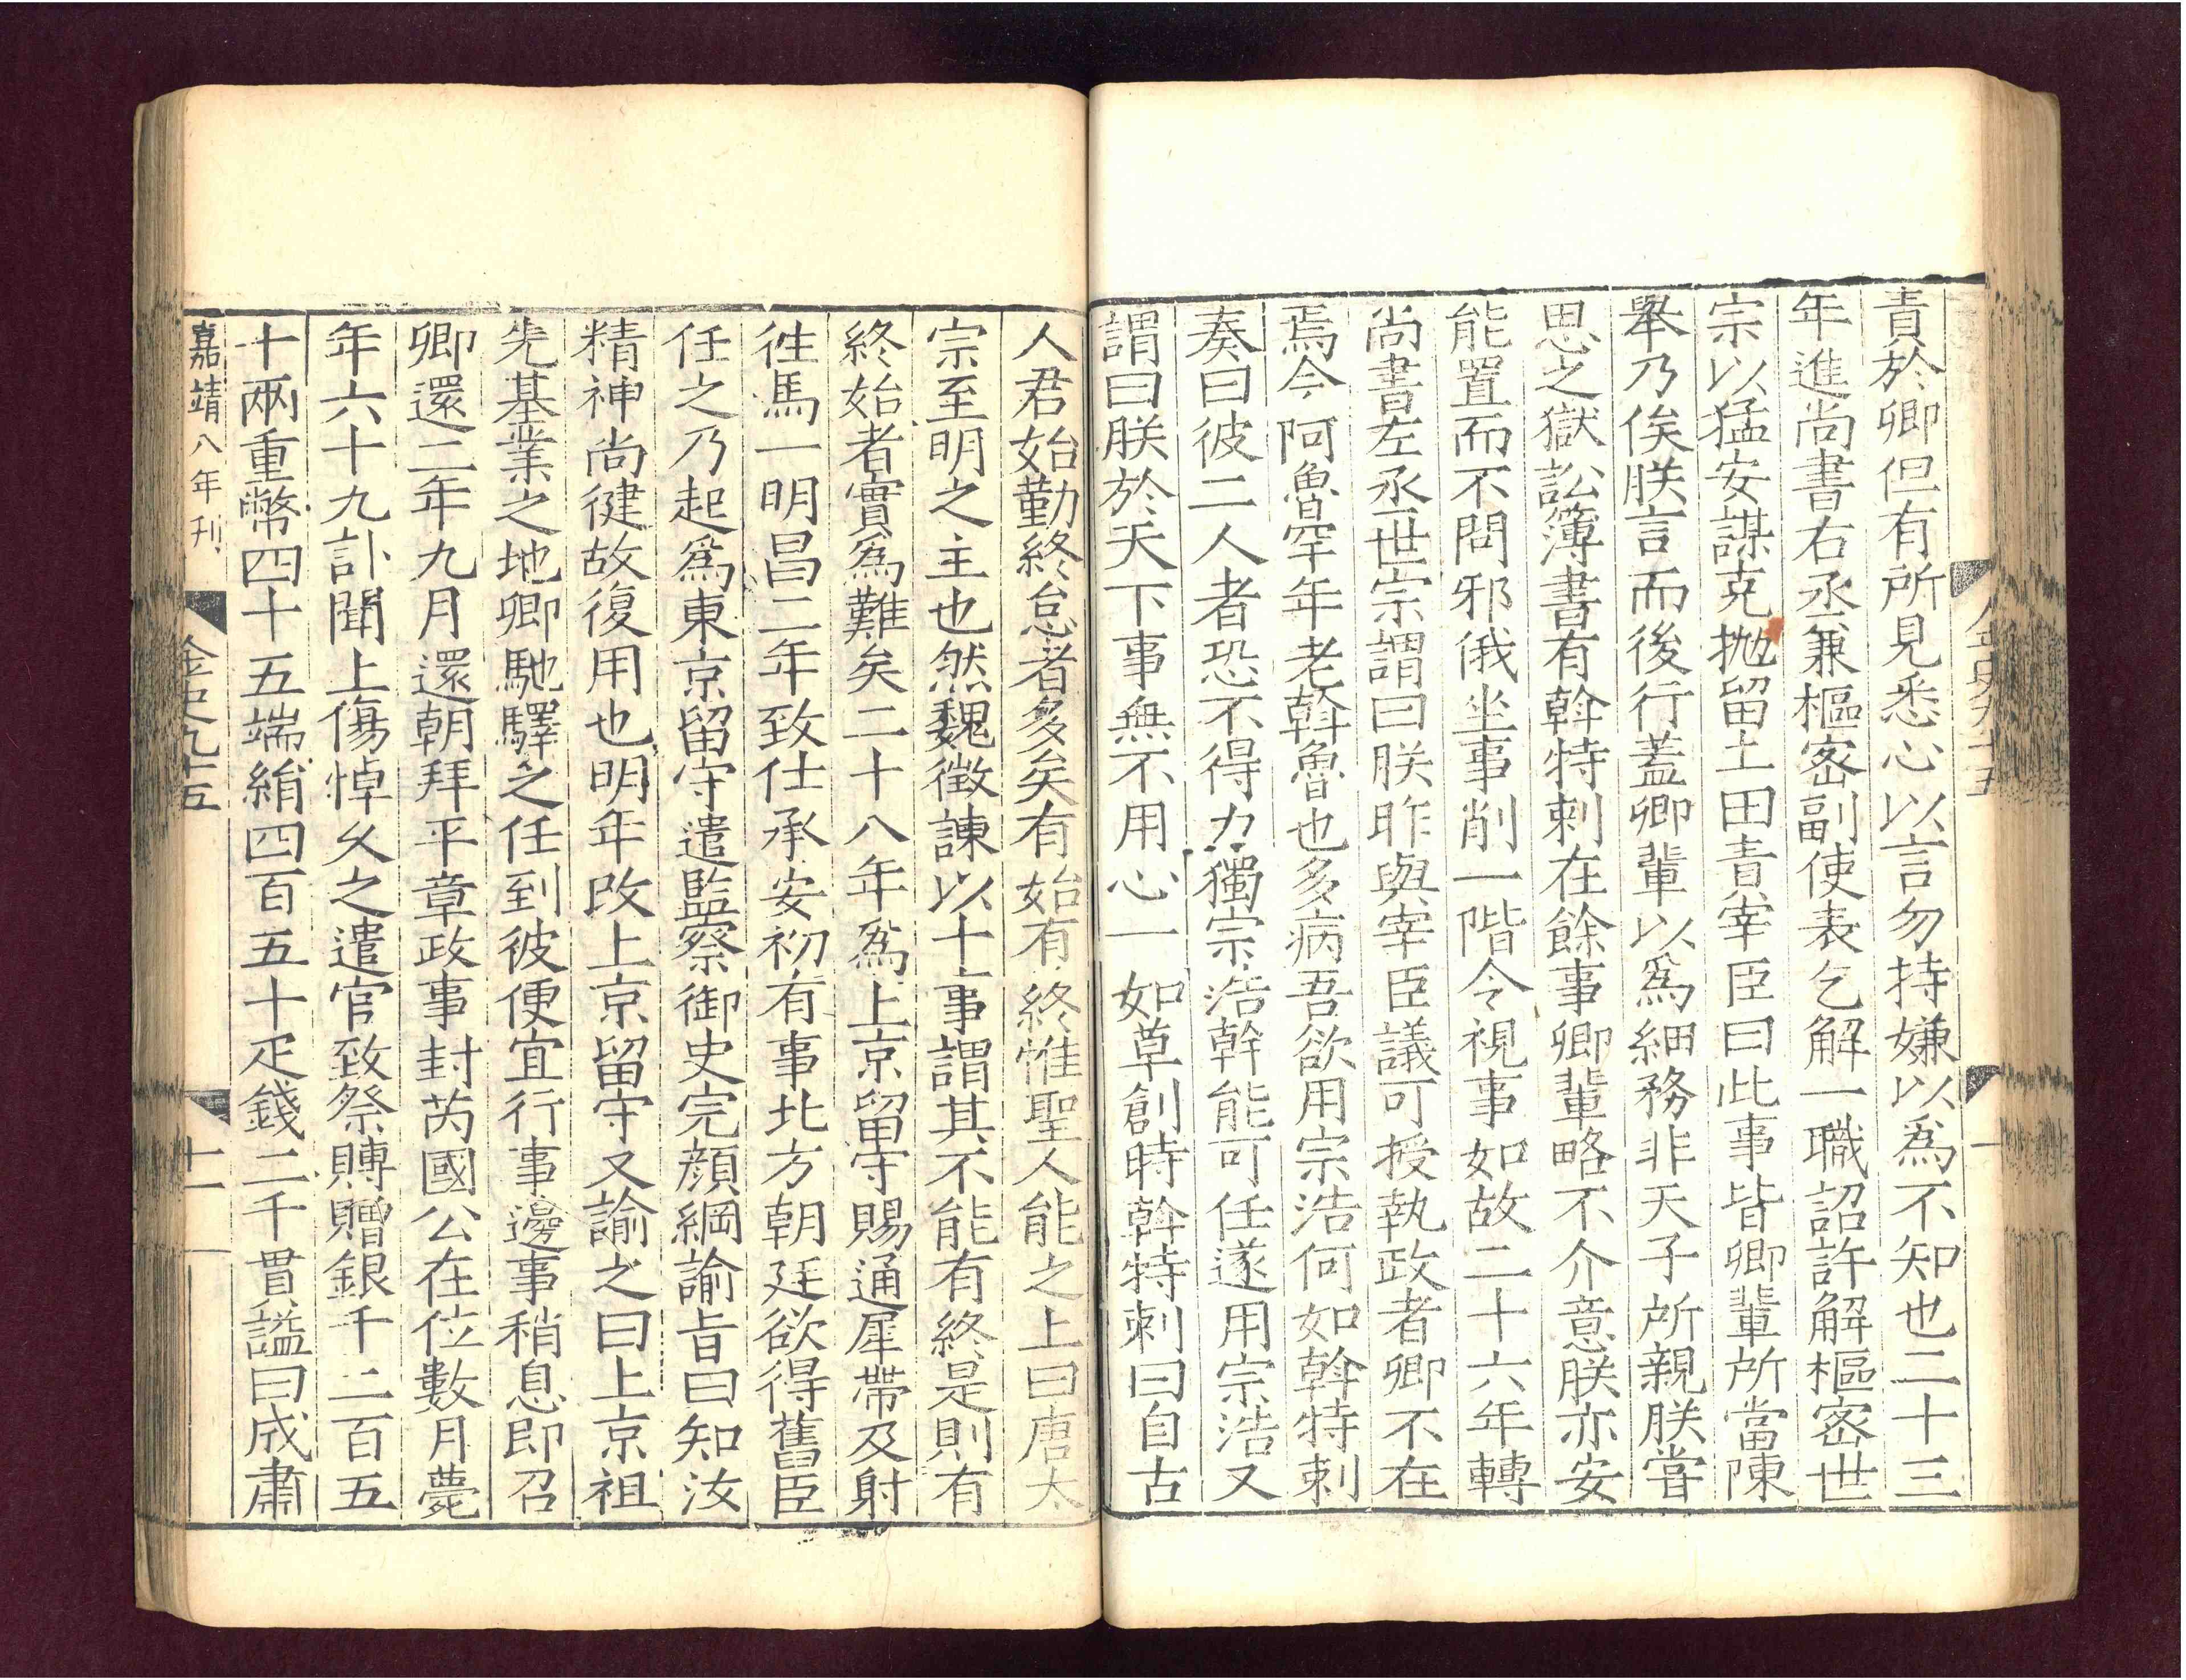 金史九十五
一
責於卿但有所見悉心以言勿持嫌以爲不知也二十三
年進尚書右丞兼樞密副使表乞解一職詔許解樞密世
宗以猛安謀克抛留土田責宰臣曰此事皆卿輩所當陳
舉乃俟朕言而後行蓋卿輩以爲細務非天子所親朕嘗
思之獄訟簿書有幹特剌在餘事卿輩略不介意朕亦安
能置而不問邪俄坐事削一階令視事如故二十六年轉
尚書左丞世宗謂曰朕昨與宰臣議可授執政者卿不在
焉今阿魯罕年老斡魯也多病吾欲用宗浩何如斡特剌
奏曰彼二人者恐不得力獨宗浩幹能可任遂用宗浩又
謂曰朕於天下事無不用心一如草創時斡特剌曰自古
人君始勤終怠者多矣有始有終惟聖人能之上曰唐太
宗至明之主也然魏徵諫以十事謂其不能有終是則有
終始者實爲難矣二十八年爲上京留守賜通犀帶及射
徃馬一明昌二年致仕承安初有事北方朝廷欲得舊臣
任之乃起爲東京留守遣監察御史完顔綱諭旨曰知汝
精神尚徤故復用也明年改上京留守又諭之曰上京祖
先基業之地卿馳驛之任到彼便宜行事邊事稍息即召
卿還二年九月還朝拜平章政事封芮國公在位數月薨
年六十九訃聞上傷悼久之遣官致祭賻贈銀千二百五
十兩重幣四十五端絹四百五十疋錢二千貫謚曰成肅
嘉靖八年刊
金史九十五
十一